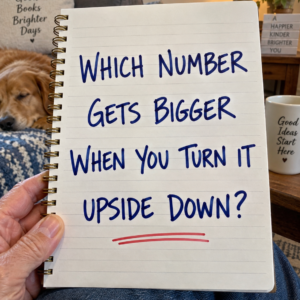 Books
Brighter
Days
WHICH NUMBER
GETS BIGGER
WHEN YOU TURN IT
UPSIDE DOWN?
A
HAPPIER
KINDER
BRIGHTER
YOU
Good
Ideas
Start
Here